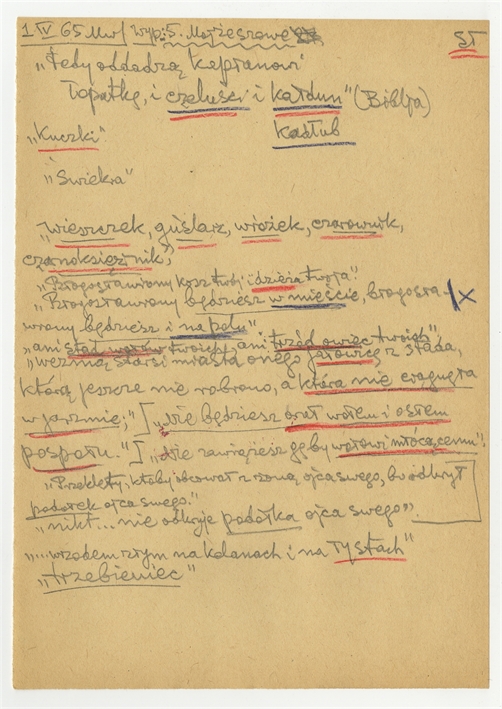 1. IV 65 Wyp: 5. Mojżeszowe
"Tedy oddadzą kapłanowi
łopatkę, i czeluści i kałdun" (Biblja)
"Kuczki" Kadłub
"Świekra"
"wieszczek, guślarz, wróżek, czarownik,
czarnoksiężnik"
"Błogosławiony kosz twój i dzieża twoja".
"Błogosławiony będziesz w mieście, błogosła-
wiony będziesz i na polu"
"ani stad wołów twoich, ani trzód owiec twoich"
"wezmą starsi miasta onego jałowicę z stada,
którą jeszcze nie robiono, a która nie ciągnęła
w jarzmie;" "nie będziesz orał wołem i osłem
pospołu." "Nie zawiążesz gęby wołowi młócącemu".
"Przeklęty, któryby obcował z żoną ojca swego, bo odkrył
podołek ojca swego."
"nikt... nie odkryje podołka ojca swego"
"...wrzodem złym na kolanach i na łystach"
"trzebieniec"